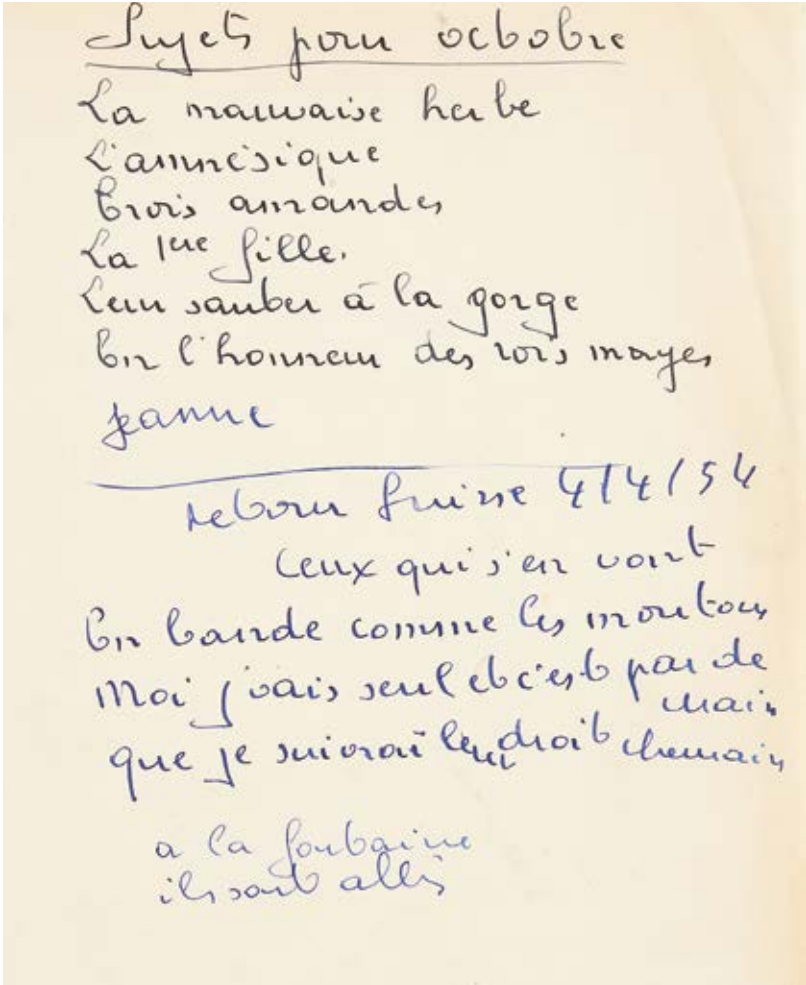 Sujets pour octobre
La mauvaise herbe
L'amnésique
Trois amandes
La 1ère fille.
Leur sauter à la gorge
En l'honneur des rois mages
Jeanne
retour Suisse 4/4/54
Ceux qui s'en vont
En bande comme les moutons
Moi j'vais seul et c'est pas de
main
que je suivrai leur droit chemain
a la fontaine
ils sont allés